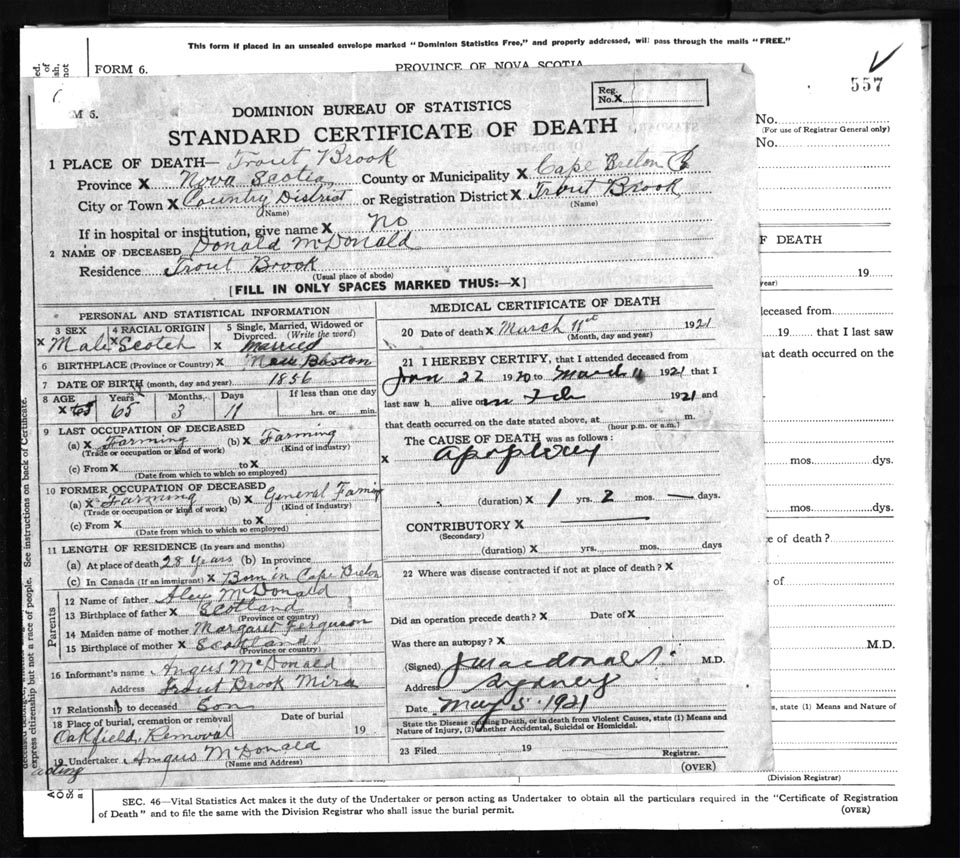 This form if placed in an unsealed envelope marked "Dominion Statistics Free," and properly addressed, will pass through the mails "FREE."
FORM 6.
PROVINCE OF NOVA SCOTIA
557
M 6.
DOMINION BUREAU OF STATISTICS
Reg. No. X
STANDARD CERTIFICATE OF DEATH
No.
(For use of Registrar General only)
No.
1 PLACE OF DEATH— Trout Brook
Province X Nova Scotia County or Municipality X Cape Breton
City or Town X Country District or Registration District X Trout Brook
(Name) (Name)
If in hospital or institution, give name X No
2 NAME OF DECEASED Donald McDonald
Residence Trout Brook
(Usual place of abode)
[FILL IN ONLY SPACES MARKED THUS:—X]
PERSONAL AND STATISTICAL INFORMATION
3 SEX 4 RACIAL ORIGIN 5 Single, Married, Widowed or Divorced. (Write the word)
X Male X Scotch X Married
6 BIRTHPLACE (Province or Country) X Boston
7 DATE OF BIRTH (month, day and year) 1856
8 AGE Years Months Days If less than one day
X 65 65 3 11 hrs. or min.
9 LAST OCCUPATION OF DECEASED
(a) X Farming (b) X Farming
(Trade or occupation or kind of work) (Kind of industry)
(c) From X to X
(Date from which to which so employed)
10 FORMER OCCUPATION OF DECEASED
(a) X Farming (b) X General Farming
(Trade or occupation or kind of work) (Kind of Industry)
(c) From X to X
(Date from which to which so employed)
11 LENGTH OF RESIDENCE (In years and months)
(a) At place of death 28 Years (b) In province
(c) In Canada (If an immigrant) X Born in Cape Breton
Parents
12 Name of father Alex McDonald
13 Birthplace of father X Scotland
(Province or country)
14 Maiden name of mother Margaret Ferguson
15 Birthplace of mother X Scotland
(Province or country)
16 Informant's name Angus McDonald
Address Trout Brook Mira
17 Relationship to deceased Son
18 Place of burial, cremation or removal Date of burial
Oakfield, Removal 19
19 Undertaker Angus McDonald
acting (Name and Address)
MEDICAL CERTIFICATE OF DEATH
20 Date of death X March 11 1921
(Month, day and year)
21 I HEREBY CERTIFY, that I attended deceased from
Jan 22 1920 to March 11 1921 that I
last saw h alive on Feb 1921 and
that death occurred on the date stated above, at m.
(hour p.m. or a.m.)
The CAUSE OF DEATH was as follows:
X apoplexy
(duration) X 1 yrs. 2 mos. — days.
CONTRIBUTORY X
(Secondary)
(duration) X yrs. mos. days
22 Where was disease contracted if not at place of death? X
Did an operation precede death? X Date of X
Was there an autopsy? X
(Signed) J Macdonald M.D.
Address Sydney
Date May 5 1921
State the Disease causing Death, or in death from Violent Causes, state (1) Means and
Nature of Injury, (2) whether Accidental, Suicidal or Homicidal.
23 Filed 19
Registrar.
(OVER)
F DEATH
19
year)
deceased from
19 that I last saw
at death occurred on the
mos. days.
mos. days.
e of death?
of
M.D.
s, state (1) Means and Nature of
(Division Registrar)
See instructions on back of Certificate.
express citizenship but not a race of people.
SEC. 46—Vital Statistics Act makes it the duty of the Undertaker or person acting as Undertaker to obtain all the particulars required in the "Certificate of Registration
of Death" and to file the same with the Division Registrar who shall issue the burial permit.
(OVER)